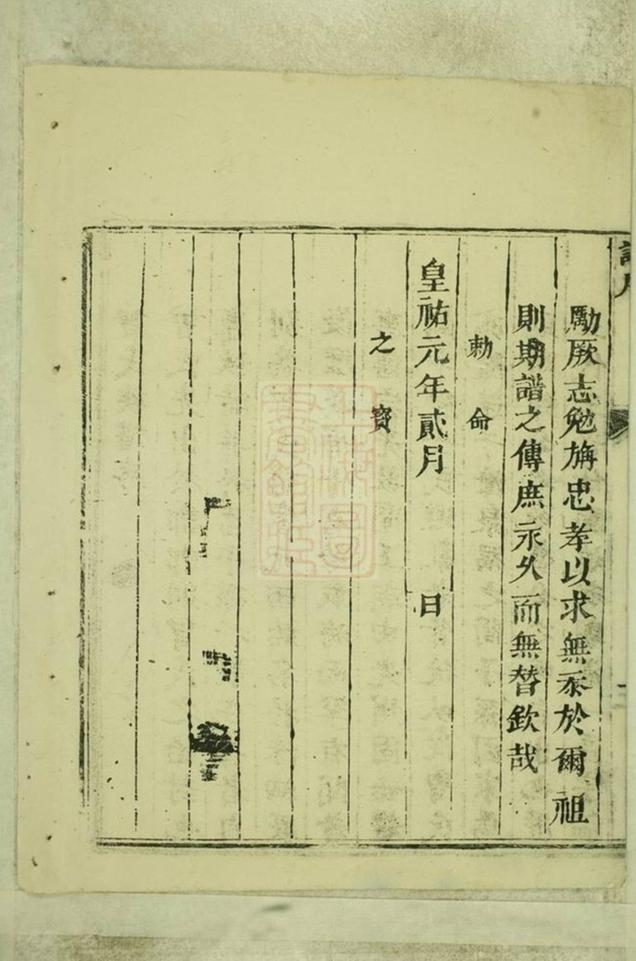 勵厥志勉旃忠孝以求無忝於爾祖
則期譜之傳庶永久而無替欽哉
敕命
皇祐元年貳月 日
之寳